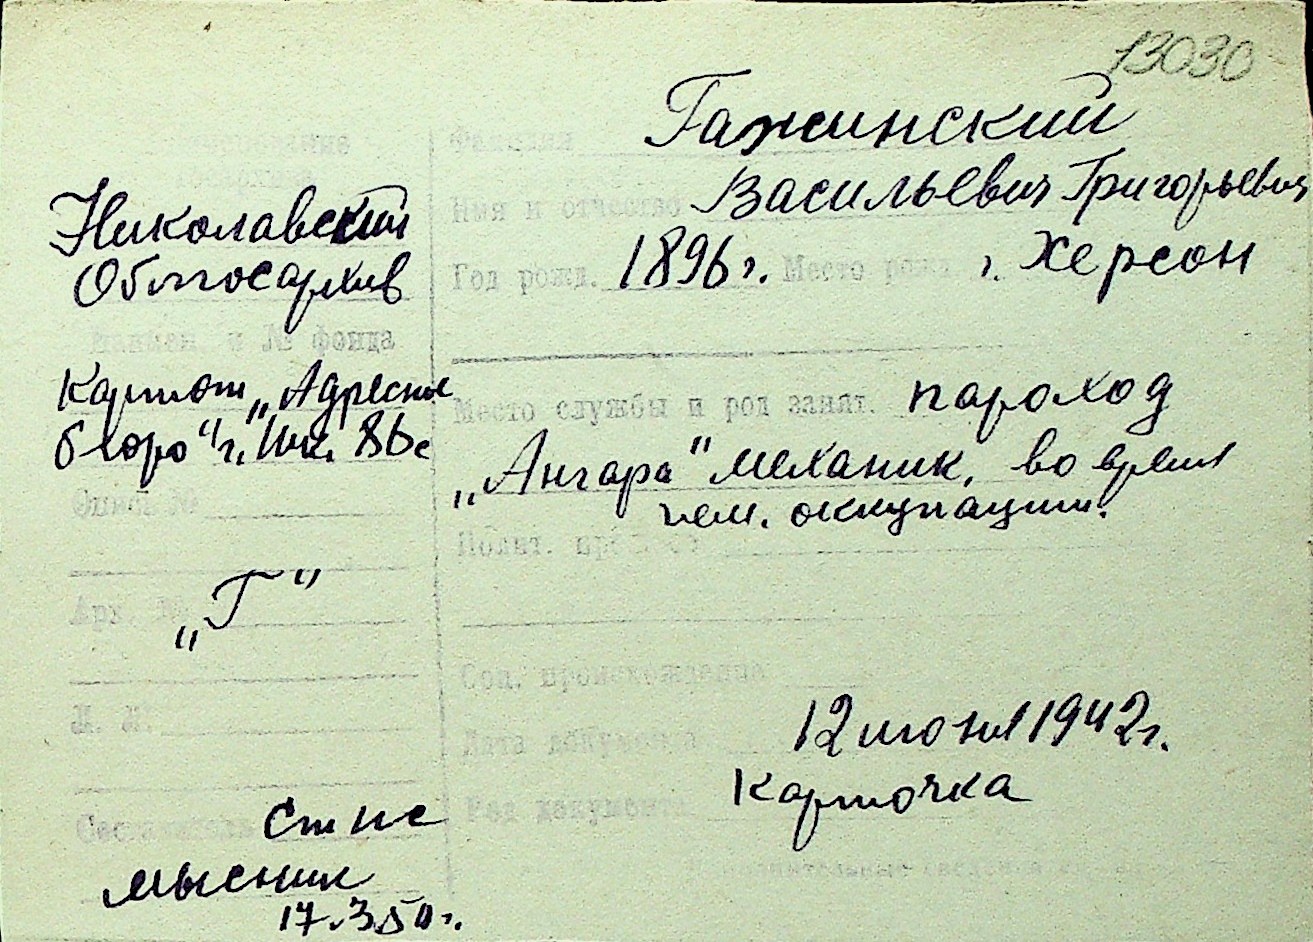 13030
Гажинский
Фамилия
Имя и отчество Васильевич Григорьевич
Год рожд. 1896 г. Место рожд. г. Херсон
Место службы и род занят. пароход
„Ангара" механик, во время
нем. оккупации.
Полит.
Соц. происхождение
Дата документа 12 июня 1942 г.
Род документа Карточка
Николаевский
Облгосархив
Наимен. и № фонда
Картот „Адресное
бюро" г. Ник. 86с
Опись №
Арх. №
„Г"
Л. л.
Составитель Ст нс
мысник
17.3 50 г.